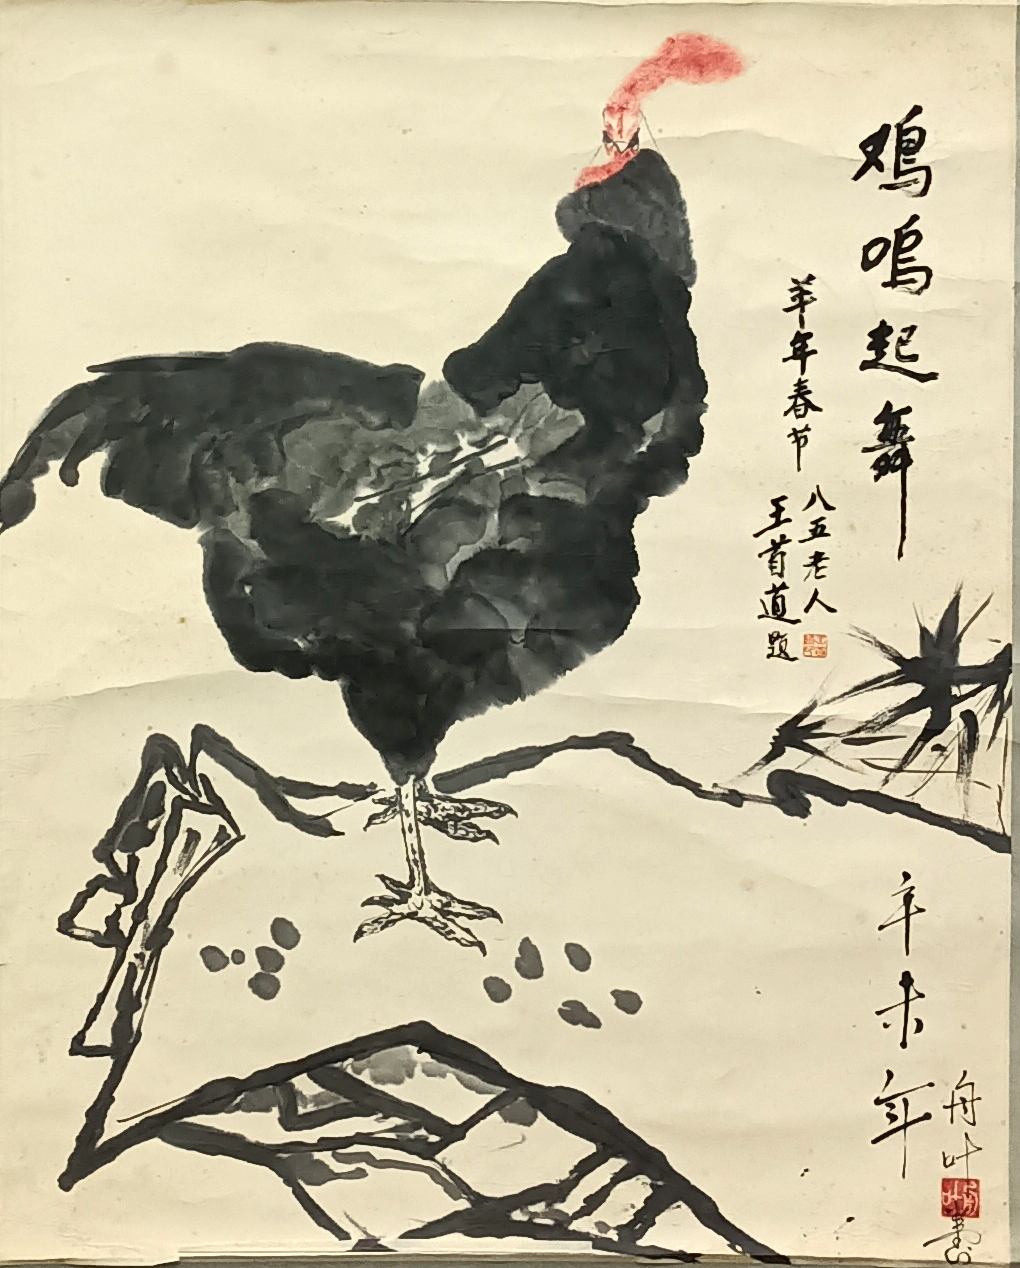 鸡鸣起舞
羊年春节
八五老人
王首道题
辛未年
舟叶